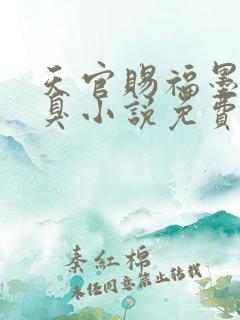 天官賜福墨
具小說免費
秦紅棉
未经同意禁止转载